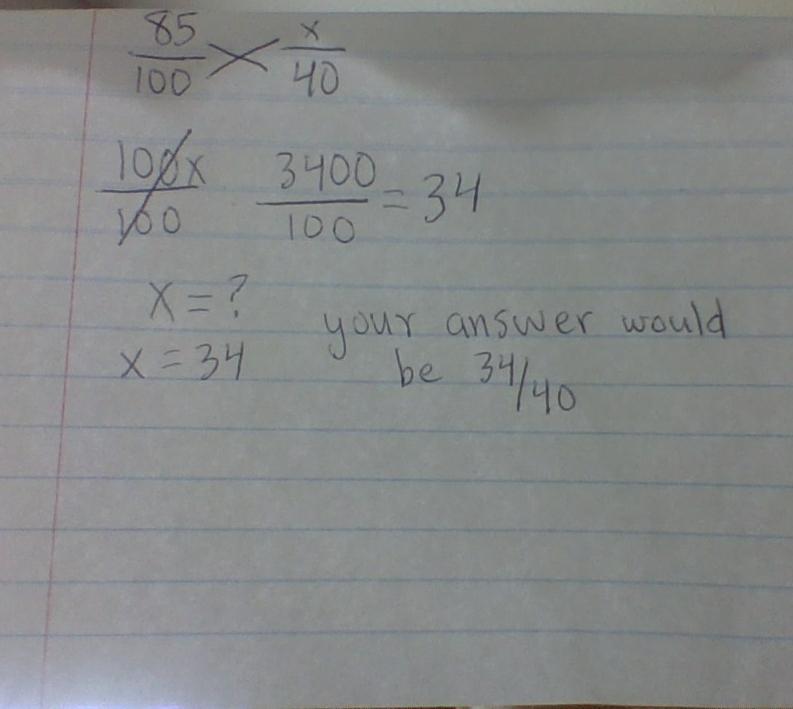 85/100 × x/40
100x/100 3400/100 = 34
x = ?
x = 34
your answer would
be 34/40